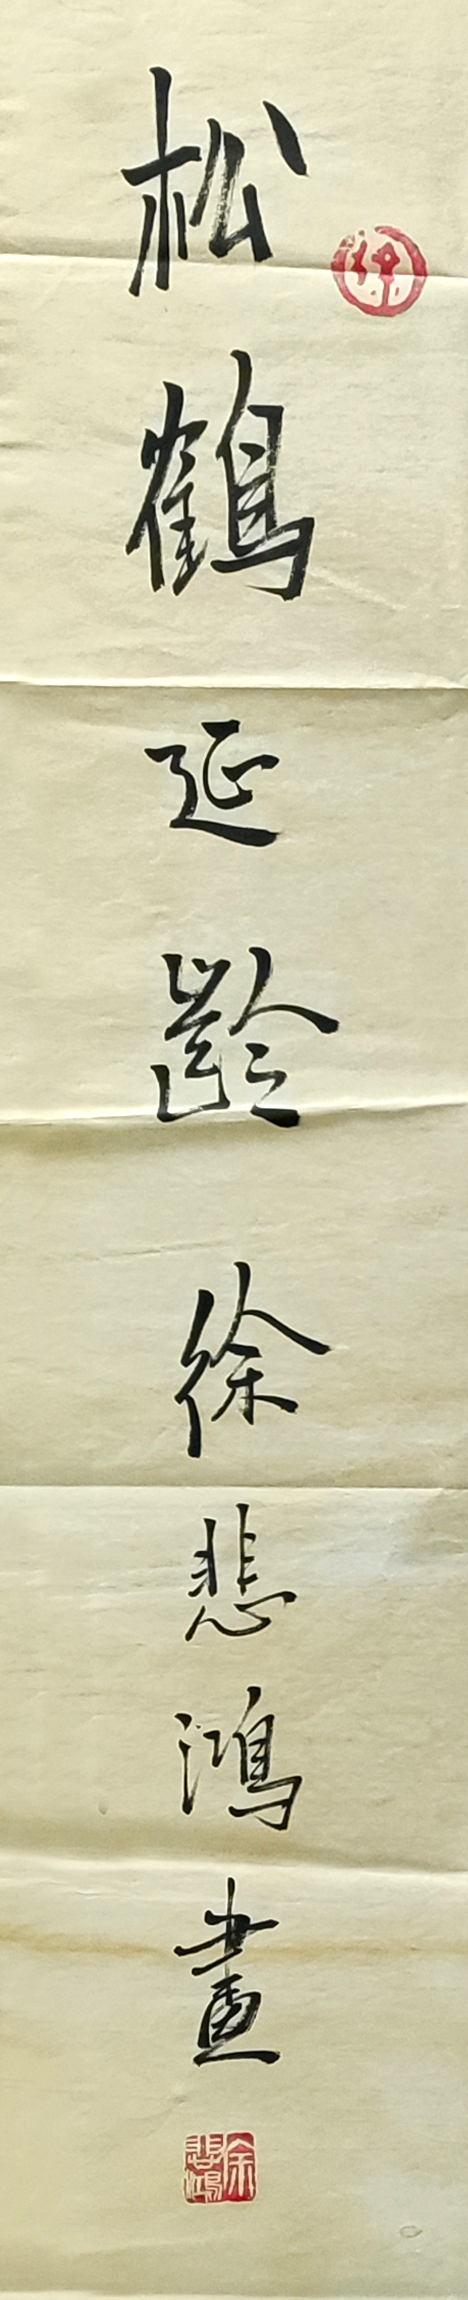 松鶴延齡徐悲鴻畫
徐悲鴻